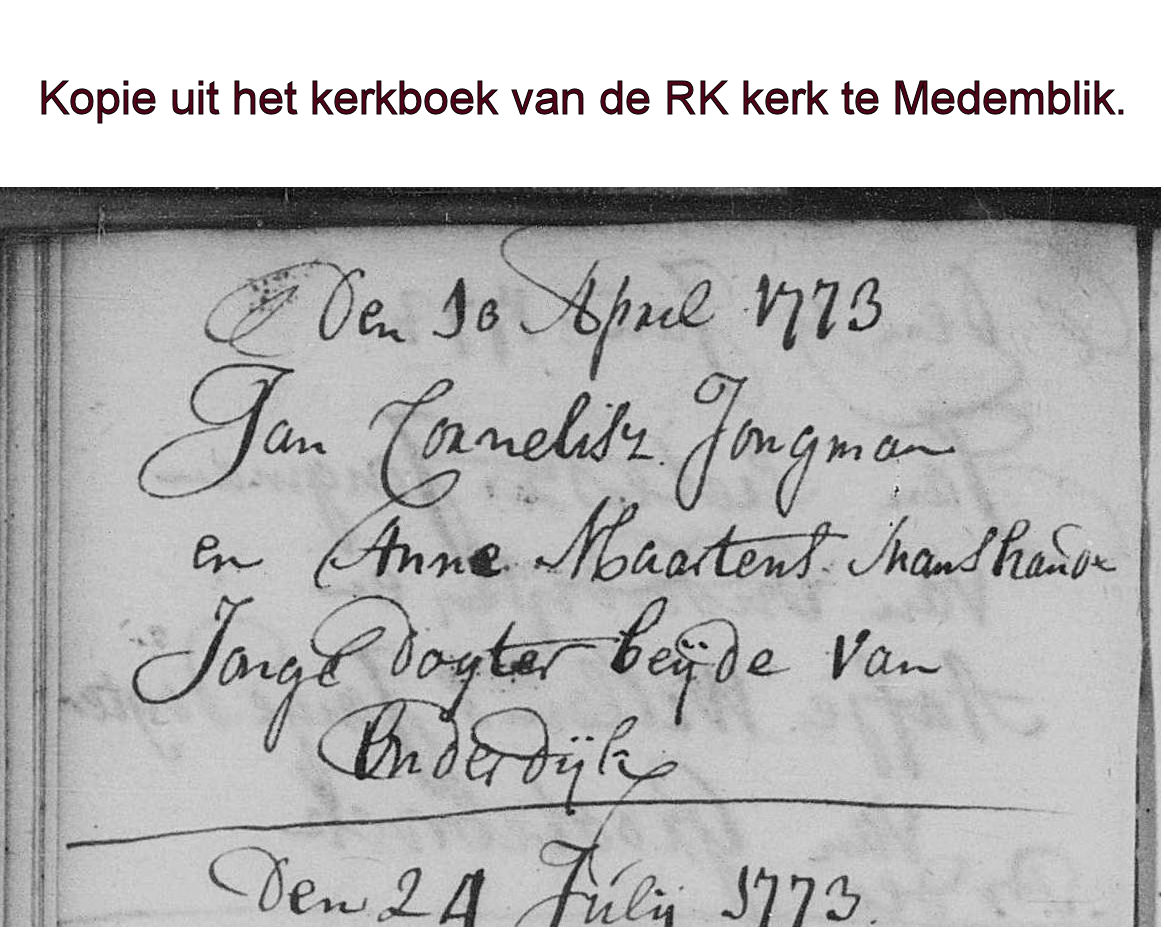 Kopie uit het kerkboek van de RK kerk te Medemblik.
Den 10 April 1773
Jan Cornelisz. Jongman
en Anne Maartens
Jonge dogter beÿde van
Onderdÿk
Den 24 Julij 1773.